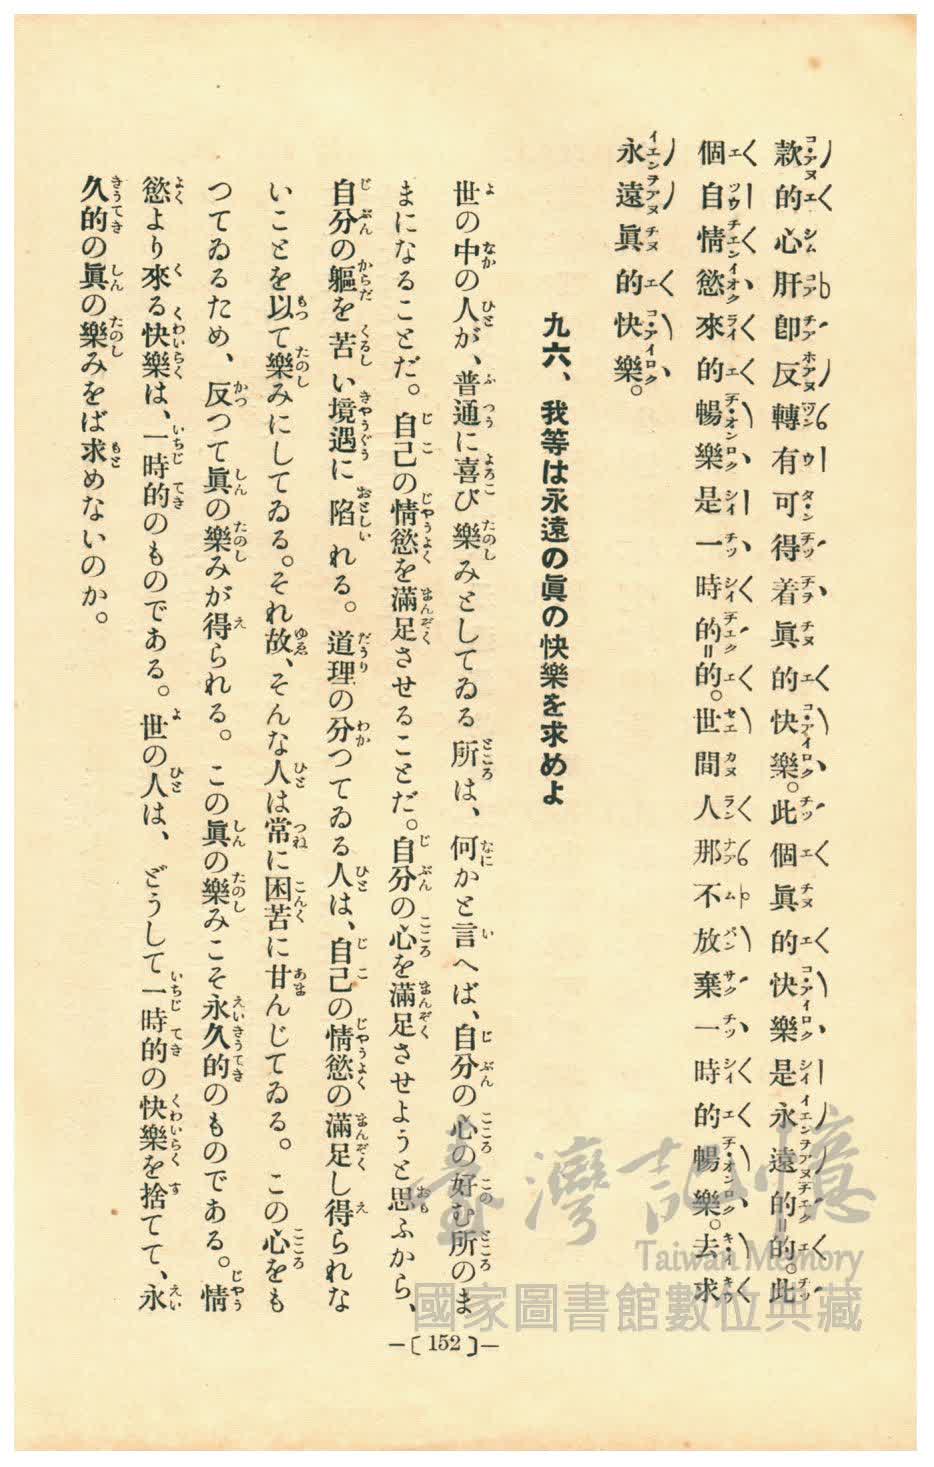 款的心肝卽反轉有可得着眞的快樂。此個眞的快樂是永遠的=的。此
個自情慾來的暢樂是一時的=的。世間人那不放棄一時的暢樂。去求
永遠眞的快樂。
九六、我等は永遠の眞の快樂を求めよ
世の中の人が、普通に喜び樂みとしてゐる所は、何かと言へば、自分の心の好む所のま
まになることだ。自己の情慾を滿足させることだ。自分の心を滿足させようと思ふから、
自分の軀を苦い境遇に陷れる。道理の分つてゐる人は、自己の情慾の滿足し得られな
いことを以て樂みにしてゐる。それ故、そんな人は常に困苦に甘んじてゐる。この心をも
つてゐるため、反つて眞の樂みが得られる。この眞の樂みこそ永久的のものである。情
慾より來る快樂は、一時的のものである。世の人は、どうして一時的の快樂を捨てて、永
久的の眞の樂みをば求めないのか。
—〔152〕—
臺灣記憶
Taiwan Memory
國家圖書館數位典藏